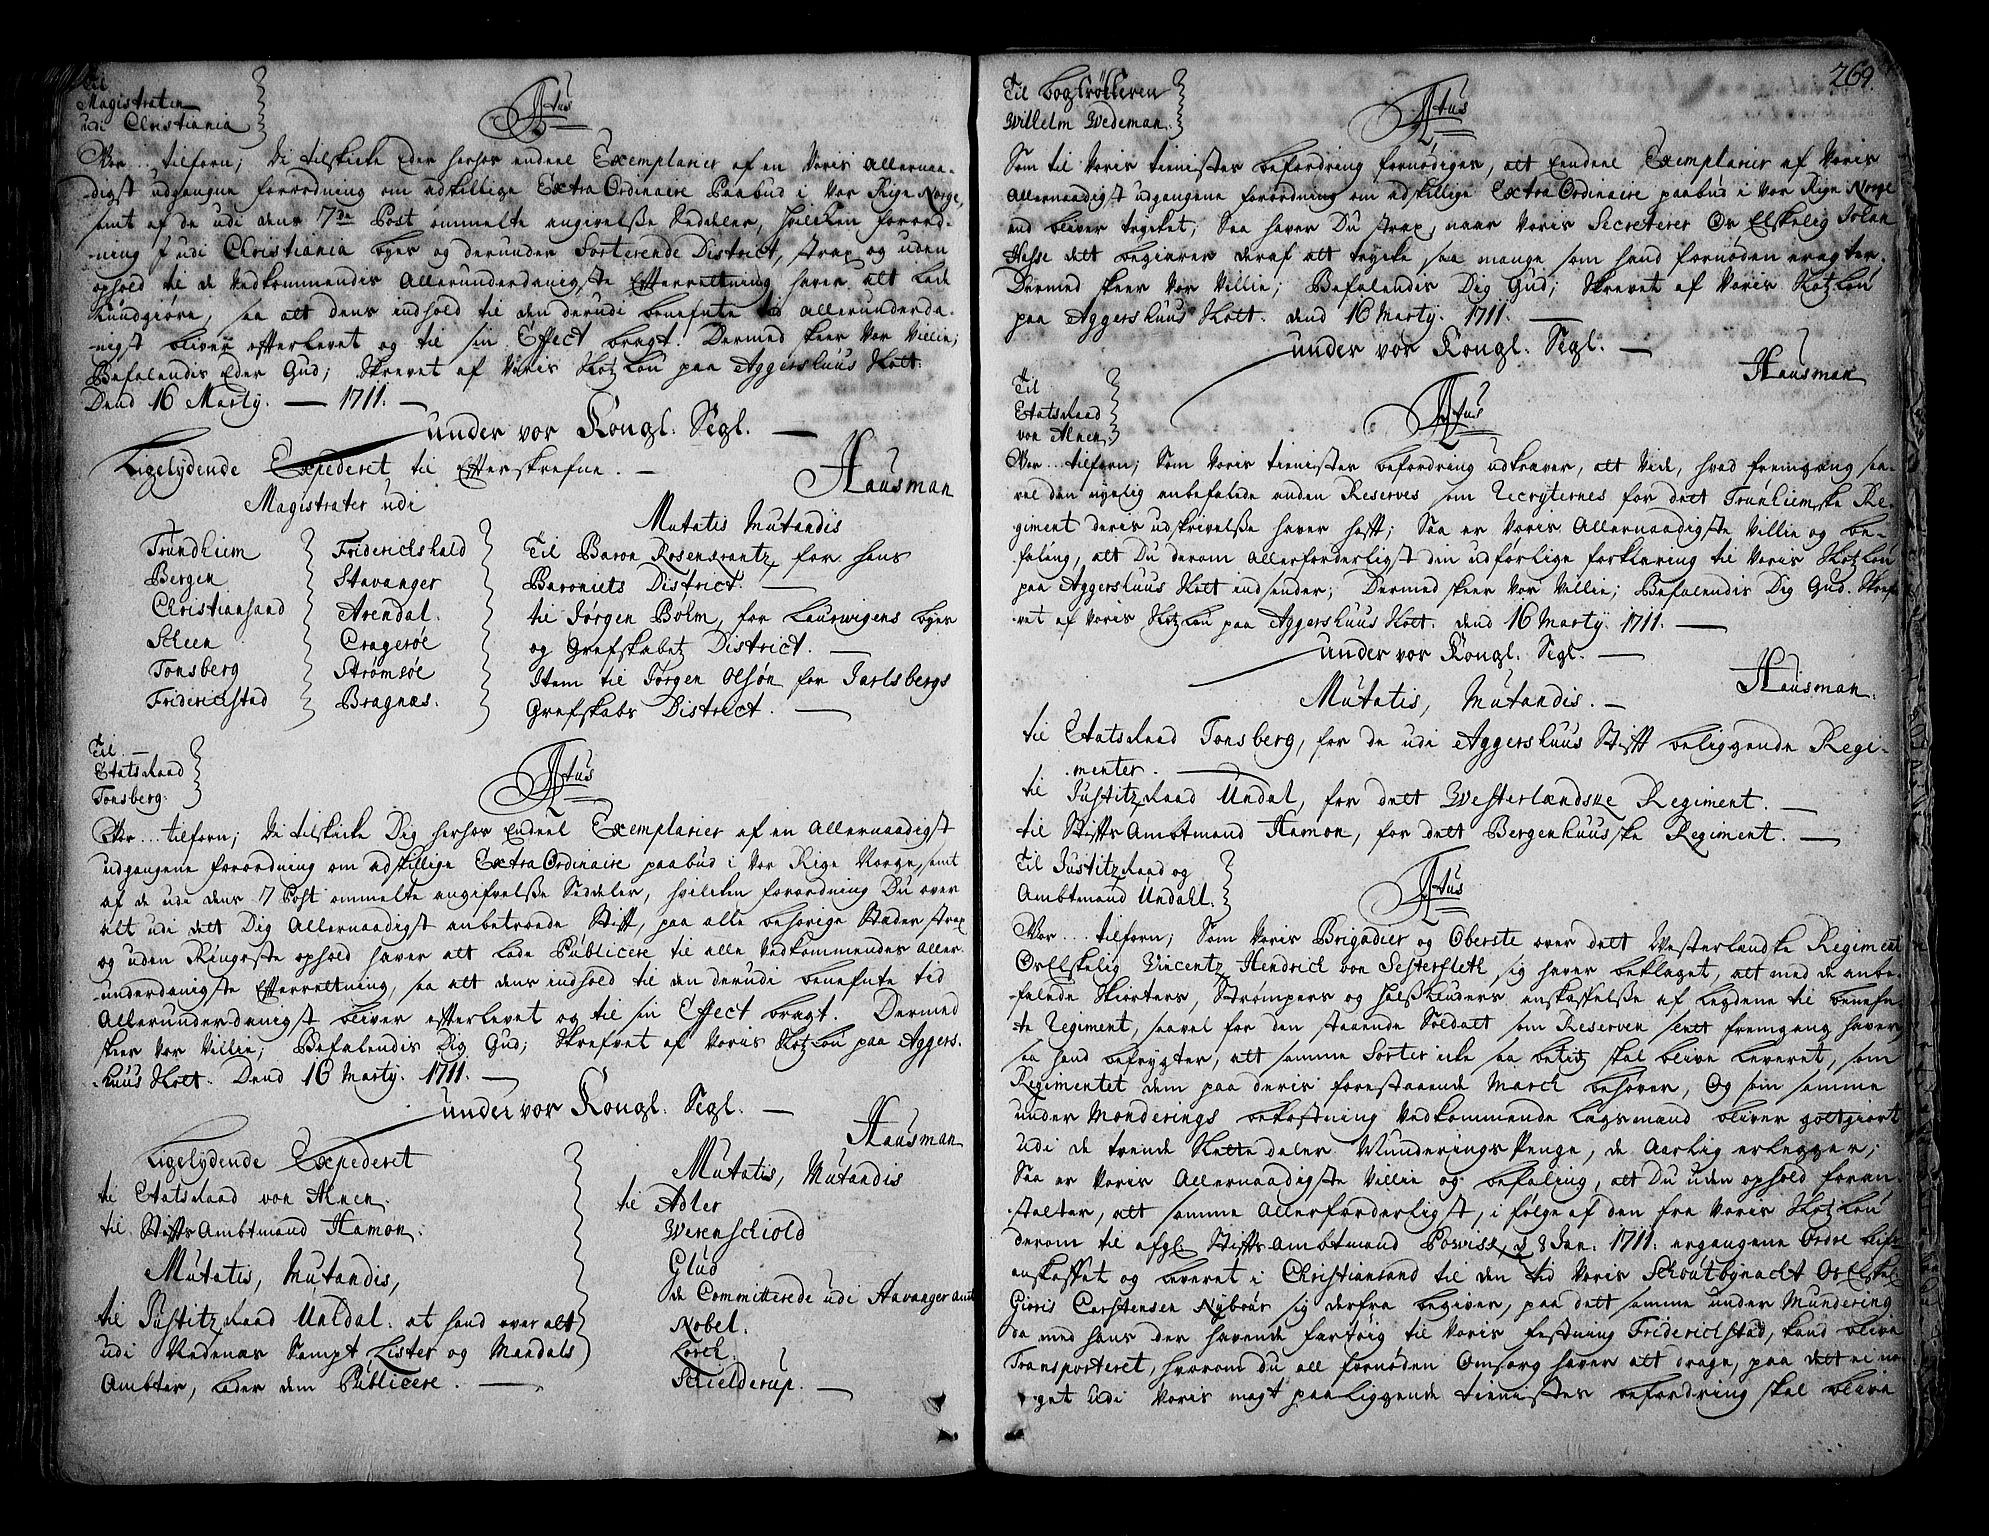 Til
Magistraten
udi Christiania
Atus
Vor... tilforn; Vi tilskicke Eder herhos endeel Exemplarier af en Voris Allernaa-
digst udgangne forordning om adskillige Extra Ordinaire Paabud i Vor Rige Norge,
samt af de udi dens 7de Post ommelte angivelse Sedeler, hvilken forord-
ning I udi Christiania byes og derunder Sorterende District, strax og uden
ophold til de Vedkommendis Allerunderdanigste Efterrettning haver att lade
Kundgiøre, saa att dens indhold til den derudi benefnte tid Allerunderda-
nigst bliver efterlevet og til sin Effect bragt. Dermed skeer Vor Villie;
Befalendis Eder Gud; Skrevet af Voris Slotz Lou paa Aggershuus Slott.
Dend 16 Marty. 1711.
under vor Kongl. Segl.
Hausman
Ligelydende Expederet til Efterskrefne.
Magistrater udi
Trundhiem
Bergen
Christiansand
Scheen
Tonsberg
Friderichstad
Friderichshald
Stavanger
Arendal.
Cragerøe
Strømsøe
Bragnæs.
Mutatis Mutandis
Til Baron Rosencrantz, for hans
Baroniets District.
til Jørgen Bohm, for Laurwigens byes
og Grefskabetz District.
Item til Jørgen Olsøn for Jarlsbergs
Grefskabs District.
Til
Etatsraad
Tonsberg.
Atus
Vor... tilforn; Vi tilskicke Dig herhos Endeel Exemplarier af en Allernaadigst
udgangene forordning om adskillige Extra Ordinaire paabud i Vor Rige Norge, samt
af de udi dens 7 Post ommelte angifvelse Seddeler, hvilcken forordning Du over
alt udi det Dig Allernaadigst anbetroede Stift, paa alle behørige Stæder strax
og uden Ringeste ophold haver att lade Publicere til alle Vedkommendes aller
underdanigste Efterrettning, saa att dens indhold til den derudi benefnte tid
Allerunderdanigst bliver efterlevet og til sin Effect bragt. Dermed
skeer Vor Villie; Befalendis Dig Gud; Skrefvet af Voris Slotz Lou paa Aggers-
huus Slott. Dend 16 Marty. 1711.
under vor Kongl. Segl.
Hausman
Ligelydende Expederet
til Etatsraad von Ahnen.
til Stifts Ambtmand Hamon.
Mutatis, Mutandis,
til Justitz Raad Undal. at hand over alt
udi Nedenæs Sampt Lister og Mandals
Ambter, lader dem Publicere.
Mutatis, Mutandis
til Adler
Werenschiold
Glud
de Committerede udi Stavanger amt
Nobel.
Lorch.
Schielderup.
269.
Til Bogtrøkkeren
Wilhelm Wedeman.
Atus
Som til Voris tienistes befordring fornødiges, att Endeel Exemplarier af Voris
Allernaadigst udgangene forordning om adskillige Extra Ordinaire paabud i Vor Rige Norge
end bliver trycket; Saa haver Du strax, naar Voris Secreterer Os Elskelig Johan
Hesse det begierer deraf att trycke saa mange som hand fornøden eragter.
Dermed skeer Vor Villie; Befalendis Dig Gud; Skrevet af Voris Slotz Lou
paa Aggershuus Slott. dend 16 Marty. 1711.
under vor Kongl. Segl.
Hausman
Til
Etatsraad
von Ahnen.
Atus
Vor... tilforn; Som Voris tienistes befordring udkræver, att Vide, hvad fremgang saa-
vel den nyelig anbefalede anden Reserves som Recryternes for dett Trundhiemske Re-
giment deris udskrivelse haver hafft; Saa er Voris Allernaadigste Villie og be-
faling, att Du derom Allerforderligst din udførlige forklaring til Voris Slotz Lou
paa Aggershuus Slott indsender; Dermed skeer Vor Villie; Befalendis Dig Gud. Skref-
vet af Voris Slotz Lou paa Aggershuus Slott. dend 16 Marty. 1711.
under vor Kongl. Segl.
Hausman.
Mutatis, Mutandis.
til Etatsraad Tonsberg, for de udi Aggershuus Stift beliggende Regi-
menter.
til Justitz Raad Undal, for dett Westerlændske Regiment.
til Stifts Ambtmand Hamon, for dett Bergenhuuske Regiment.
Til Justitz Raad og
Ambtmand Undahl.
Atus
Vor... tilforn; Som Voris Brigadier og Oberste over dett Vesterlandske Regiment
Os Elskelig Vincentz Hendrich von Sesterfleth, sig haver beklaget, att med de anbe-
falede Skiorters, Strømpers og Halskluders anskaffelse af Legdene til benefn-
te Regiment, saavel for den staaende Soldatt som Reserven slett fremgang haver,
saa hand befrygter, att samme Sorter icke saa betitz skal blive leveret, som
Regimentet dem paa deris forestaaende March behøver, Og som samme
under Monderings bekostning Vedkommende Lægsmænd bliver gottgiort
udi de trende Rettedaler Munderings Penge, de Aarlig erlegger;
Saa er Voris Allernaadigste Villie og befaling, att Du uden ophold foran-
stalter, att samme Allerforderligst, i følge af den fra Voris Slotz Lou
derom til afgl. Stifts Ambtmand Powisk, d 8 Jan. 1711. ergangene Ordre blifr
anskaffet og leveret i Christiansand til den tid Voris Schoutbynacht Os Elskel
Gioris Carstensen Nybour sig derfra begiver, paa dett samme under Mundering
da med hans der havende fartøig til Voris festning Friderichstad, kand blive
Transporteret, hvorom du all fornøden Omsorg haver att drage, paa det ei no
get udi Voris magt paaliggende tienistes befordring skal blive